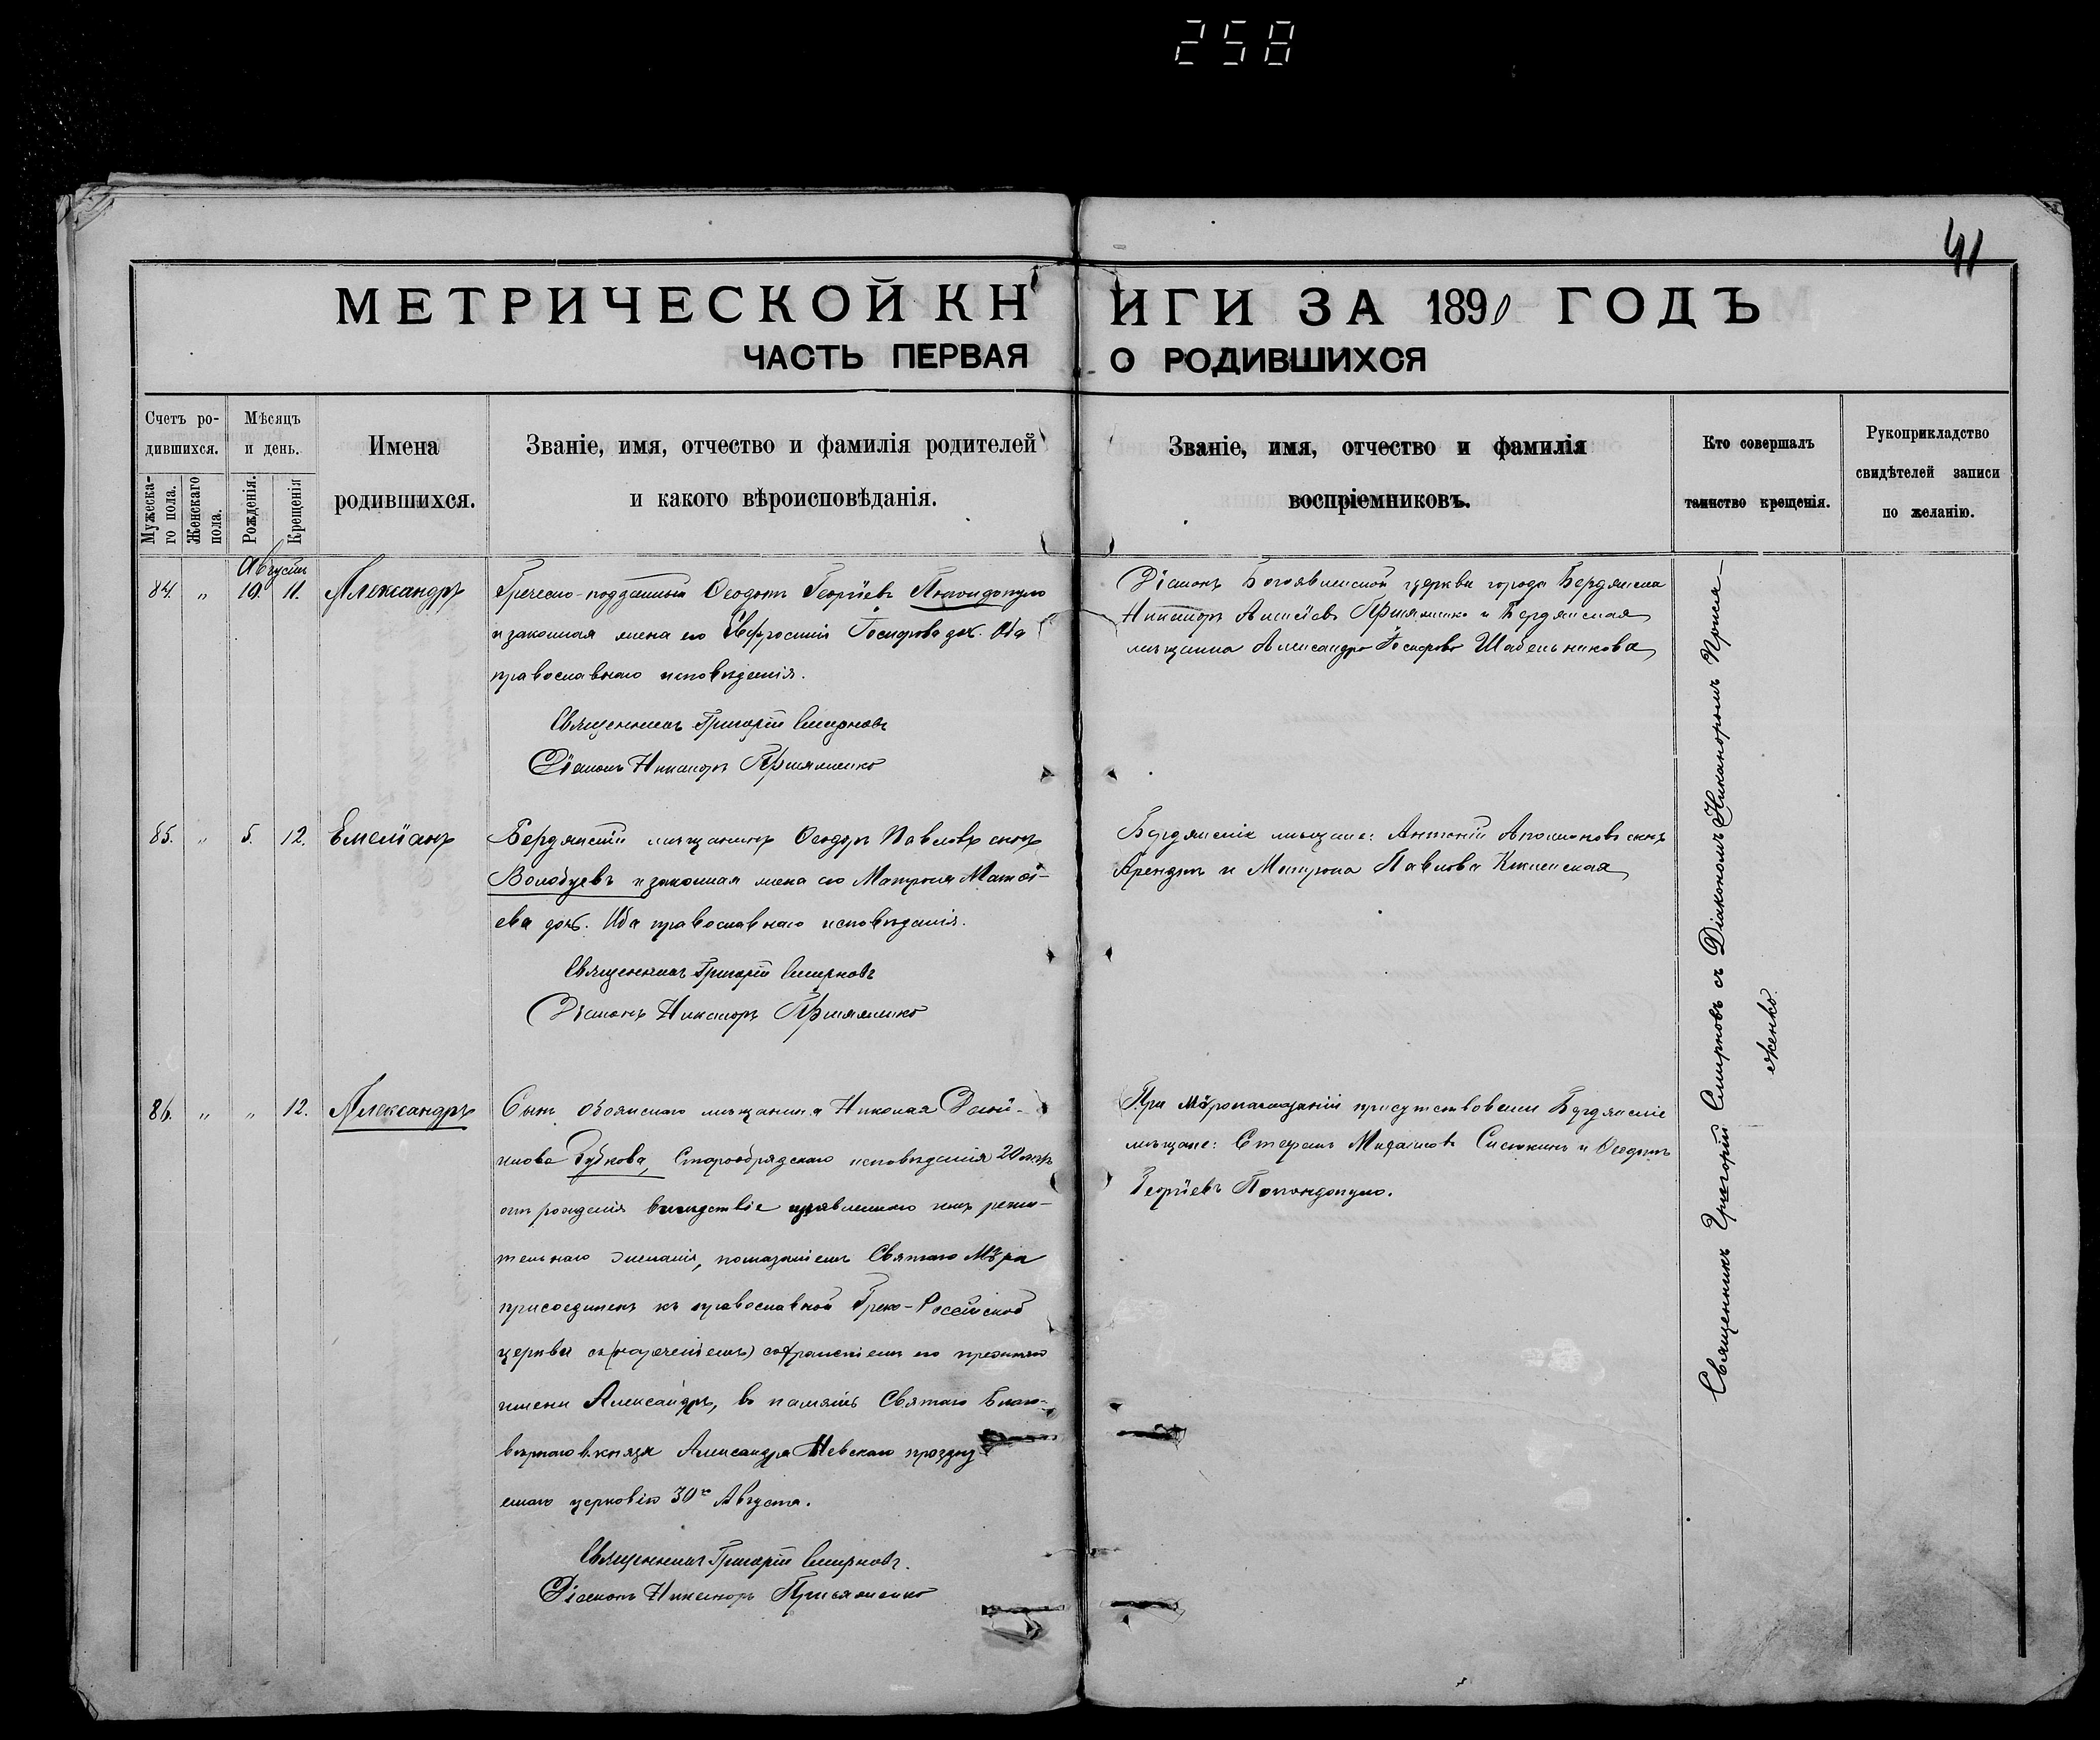 258
41
МЕТРИЧЕСКОЙ КНИГИ ЗА 1890 ГОДЪ
ЧАСТЬ ПЕРВАЯ О РОДИВШИХСЯ
Счетъ ро-
дившихся.
Мужеска-
го пола.
Женскаго
пола.
Мѣсяцъ
и день.
Рожденія.
Крещенія
Имена
родившихся.
Званіе, имя, отчество и фамилія родителей
и какого вѣроисповѣданія.
Званіе, имя, отчество и фамилія
воспріемниковъ.
Кто совершалъ
таинство крещенія.
Рукоприкладство
свидѣтелей записи
по желанію.
Августъ
84. " 10. 11. Александръ
Греческо-подданный Ѳеодотъ Георгіевъ Попондопуло
и законная жена его Евфросинія Іосифова доч. Оба
православнаго исповѣданія.
Священникъ Григорій Смирновъ
Діаконъ Никаноръ Присяженко
Діаконъ Богоявленской церкви города Бердянска
Никаноръ Алексіевъ Присяженко и Бердянская
мѣщанка Александра Іосифова Шабельникова
85. " 5. 12. Емеліанъ
Бердянскій мѣщанинъ Ѳеодоръ Павловъ сынъ
Волобуевъ и законная жена его Матрона Матѳі-
ева доч. Оба православнаго исповѣданія.
Священникъ Григорій Смирновъ
Діаконъ Никаноръ Присяженко
Бердянскіе мѣщане: Антоній сынъ
и Матрона Павлова
86. " " 12. Александръ
Сынъ Обоянскаго мѣщанина Николая
Зубкова, Старообрядскаго исповѣданія 20
отъ рожденія вслѣдствіе изъявленнаго имъ рѣши-
тельнаго желанія, помазаніемъ Святаго Мѵра
присоединенъ къ православной Греко-Россійской
церкви съ (нареченіемъ) сохраненіемъ его прежняго
имени Александръ, въ память Святаго Благо-
вѣрнаго в. князя Александра Невскаго празднуе
емаго церковію 30го Августа.
Священникъ Григорій Смирновъ.
Діаконъ Никаноръ Присяженко
При Мѵропомазаніи присутствовали Бердянскіе
мѣщане: Стефанъ и Ѳеодотъ
Георгіевъ Попондопуло.
Священникъ Григорій Смирновъ съ Діакономъ Никаноромъ Прися-
женко.